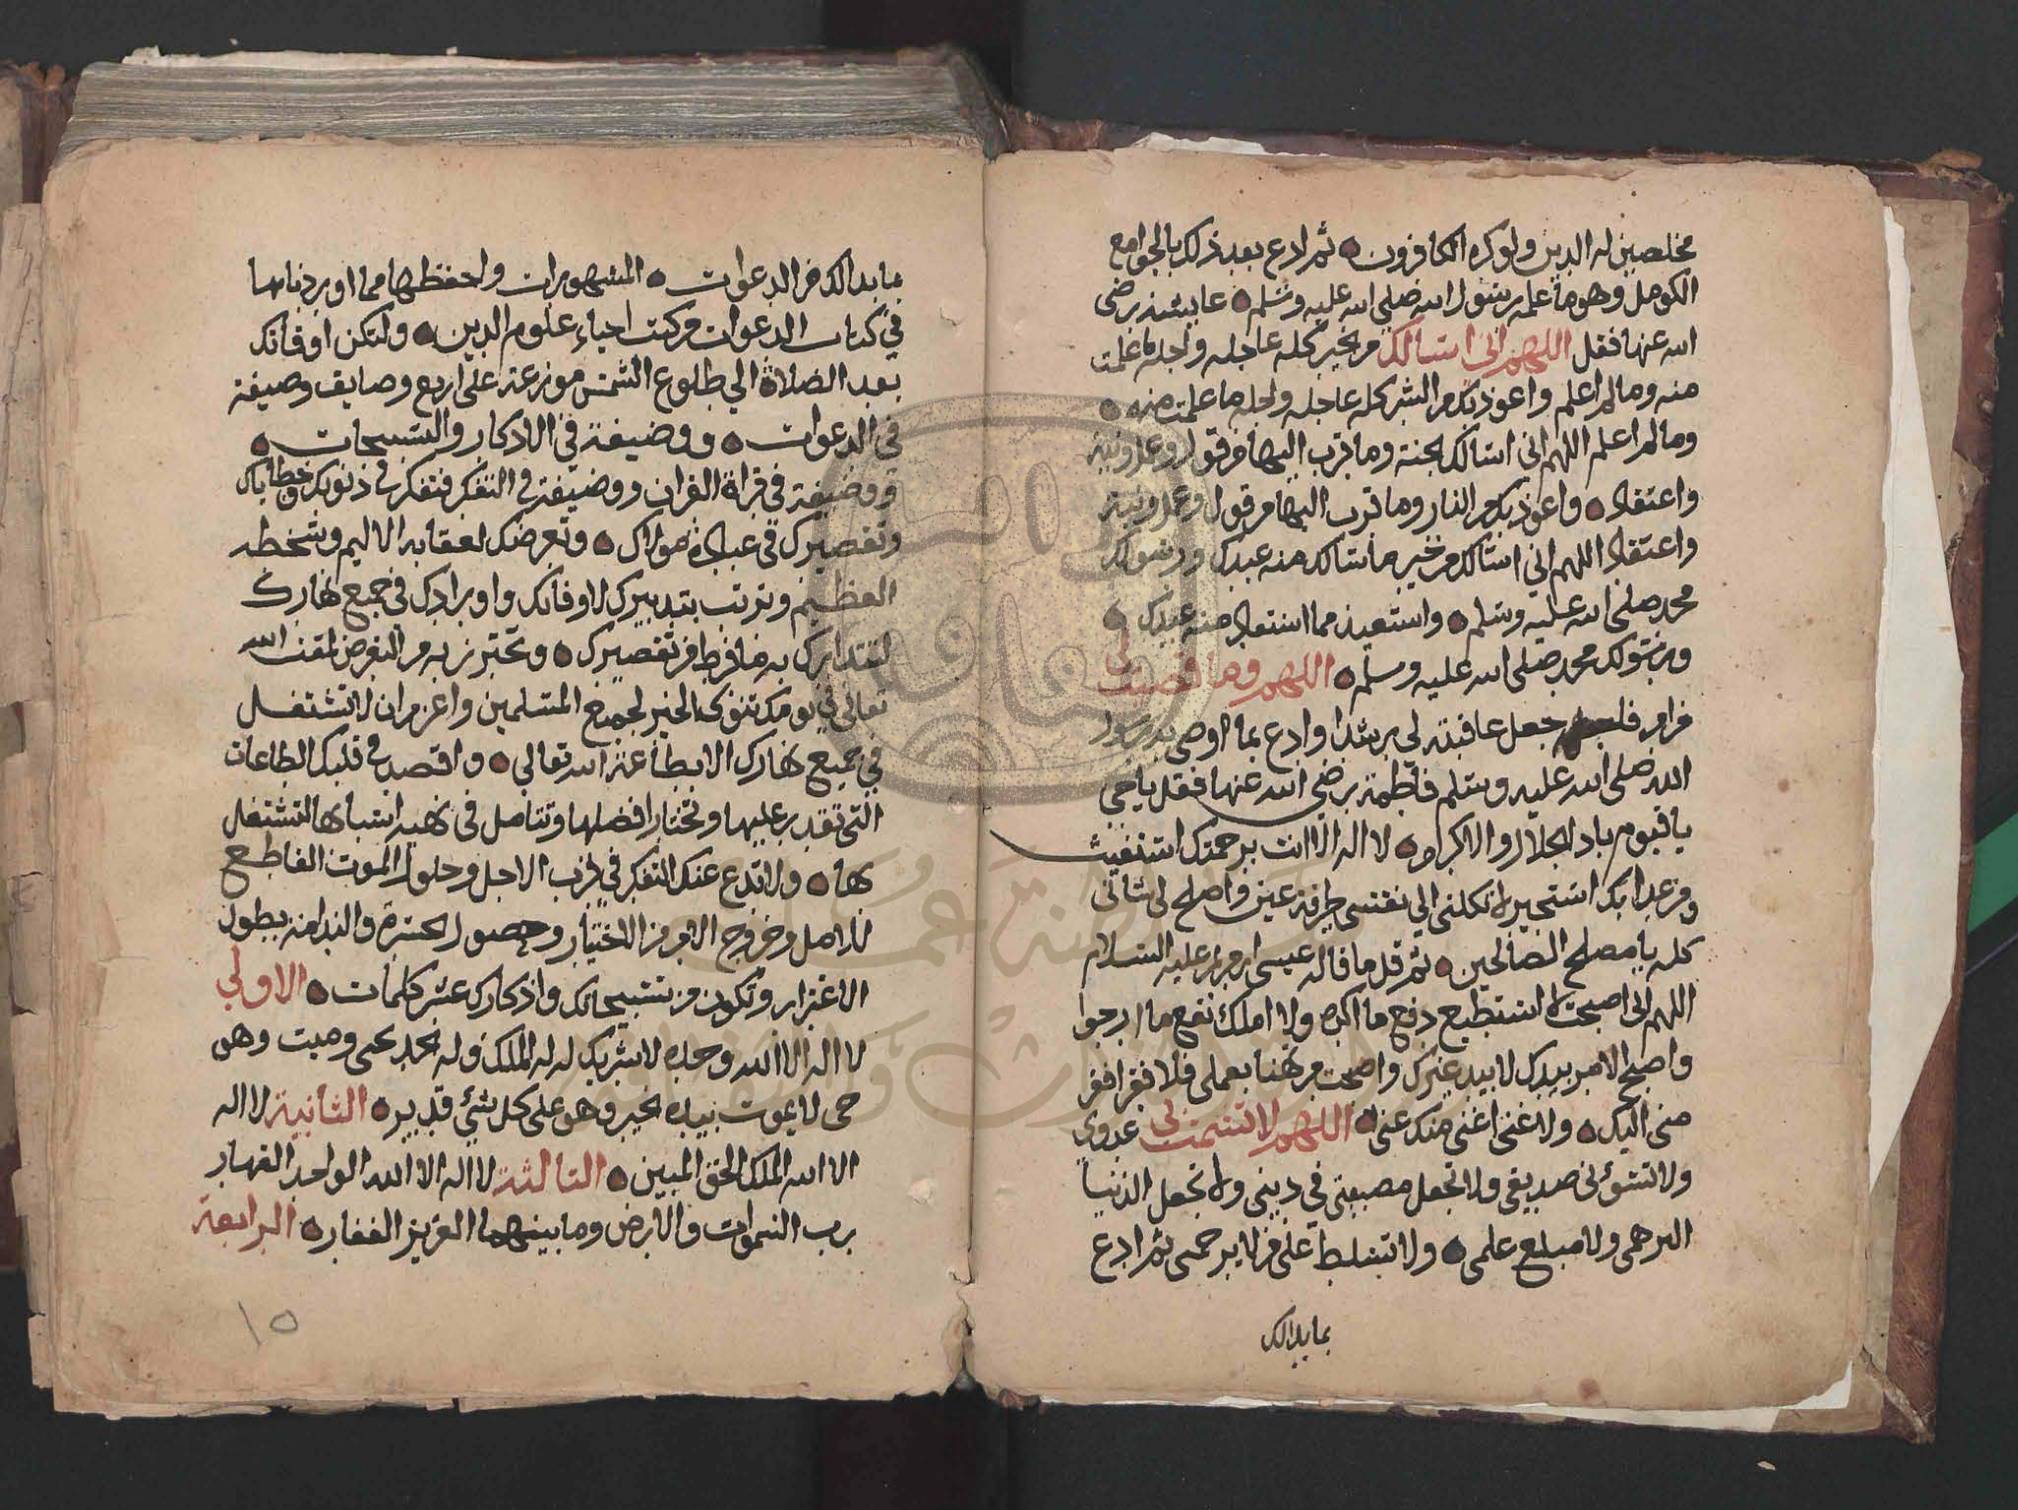 مخلصين له الدين ولو كره الكافرون ثم ادع بعد ذلك بالجوامع
الكومل وهو ما علمه رسول الله صلى الله عليه وسلم عايشه رضى
الله عنها فقل اللهم انى اسالك من الخير كله عاجله واجله ما علمت
منه وما لم اعلم واعوذ بك من الشر كله عاجله واجله ما علمت منه
وما لم اعلم اللهم اني اسالك الجنة وما قرب اليها من قول وعمل ونية
واعتقاد واعوذ بك من النار وما قرب اليها من قول وعمل ونية
واعتقاد اللهم اني اسالك من خير ما سالك منه عبدك ورسولك
محمد صلى الله عليه وسلم واستعيذ مما استعاذ منه عبدك
ورسولك محمد صلى الله عليه وسلم اللهم وما قضيت لي
من امر فاجعل عاقبته لي رشدا وادع بما اوصى به رسول
الله صلى الله عليه وسلم فاطمة رضي الله عنها فقل يا حي
يا قيوم ياذا الجلال والاكرام لا اله الا انت برحمتك استغيث
ومن عذابك استجير لا تكلني الي نفسي طرفة عين واصلح لي شاني
كله يا مصلح الصالحين ثم قل ما قاله عيسى ابن مريم عليه السلام
اللهم انى اصبحت لا استطيع دفع ما اكره ولا املك نفع ما ارجوا
واصبح الامر بيدك لا بيد غيرك واصبحت مرتهنا بعملى فلا فقر افقر
منى اليك ولا غنى اغنى منك عنى اللهم لا تشمت بى عدوي
ولا تسؤ بى صديقى ولا تجعل مصيبتى في دينى ولا تجعل الدنيا
اكبر همى ولا مبلغ علمى ولا تسلط على من لا يرحمنى ثم ادع
بما بدا لك
ما بدا لك من الدعوات المشهورات واحفظها مما اوردناها
في كتاب الدعوات من كتب احياء علوم الدين ولتكن اوقاتك
بعد الصلاة الي طلوع الشمس موزعة على اربع وضايف وضيفة
في الدعوات ووضيفة في الاذكار والتسبيحات
ووضيفة في قراة القران ووضيفة في التفكر فتفكر في ذنوبك وخطاياك
وتقصيرك في عبادة مولاك وتعرضك لعقابه الاليم وسخطه
العظيم وترتب بتدبيرك لاوقاتك واورادك في جميع نهارك
لتتدارك به ما فرط من تقصيرك وتحترز به من التعرض لمقت الله
تعالى في يومك وتنوي الخير لجميع المسلمين واعزم ان لا تشتغل
في جميع نهارك الا بطاعة الله تعالي واقصد في قلبك الطاعات
التي تقدر عليها وتختار افضلها وتتامل في تهيه اسبابها لتشتغل
بها ولا تدع عنك التفكر في قرب الاجل وحلول الموت القاطع
للامل وخروج الامر من الاختيار وحصول الحسرة والندامة بطول
الاغترار وتكون من تسبيحاتك واذكارك عشر كلمات الاولي
لا اله الا الله وحده لا شريك له له الملك وله الحمد يحى وميت وهو
حى لا يموت بيده الخير وهو على كل شئ قدير الثانية لا اله
الا الله الملك الحق المبين الثالثة لا اله الا الله الواحد القهار
رب السموات والارض وما بينهما العزيز الغفار الرابعة
١٥